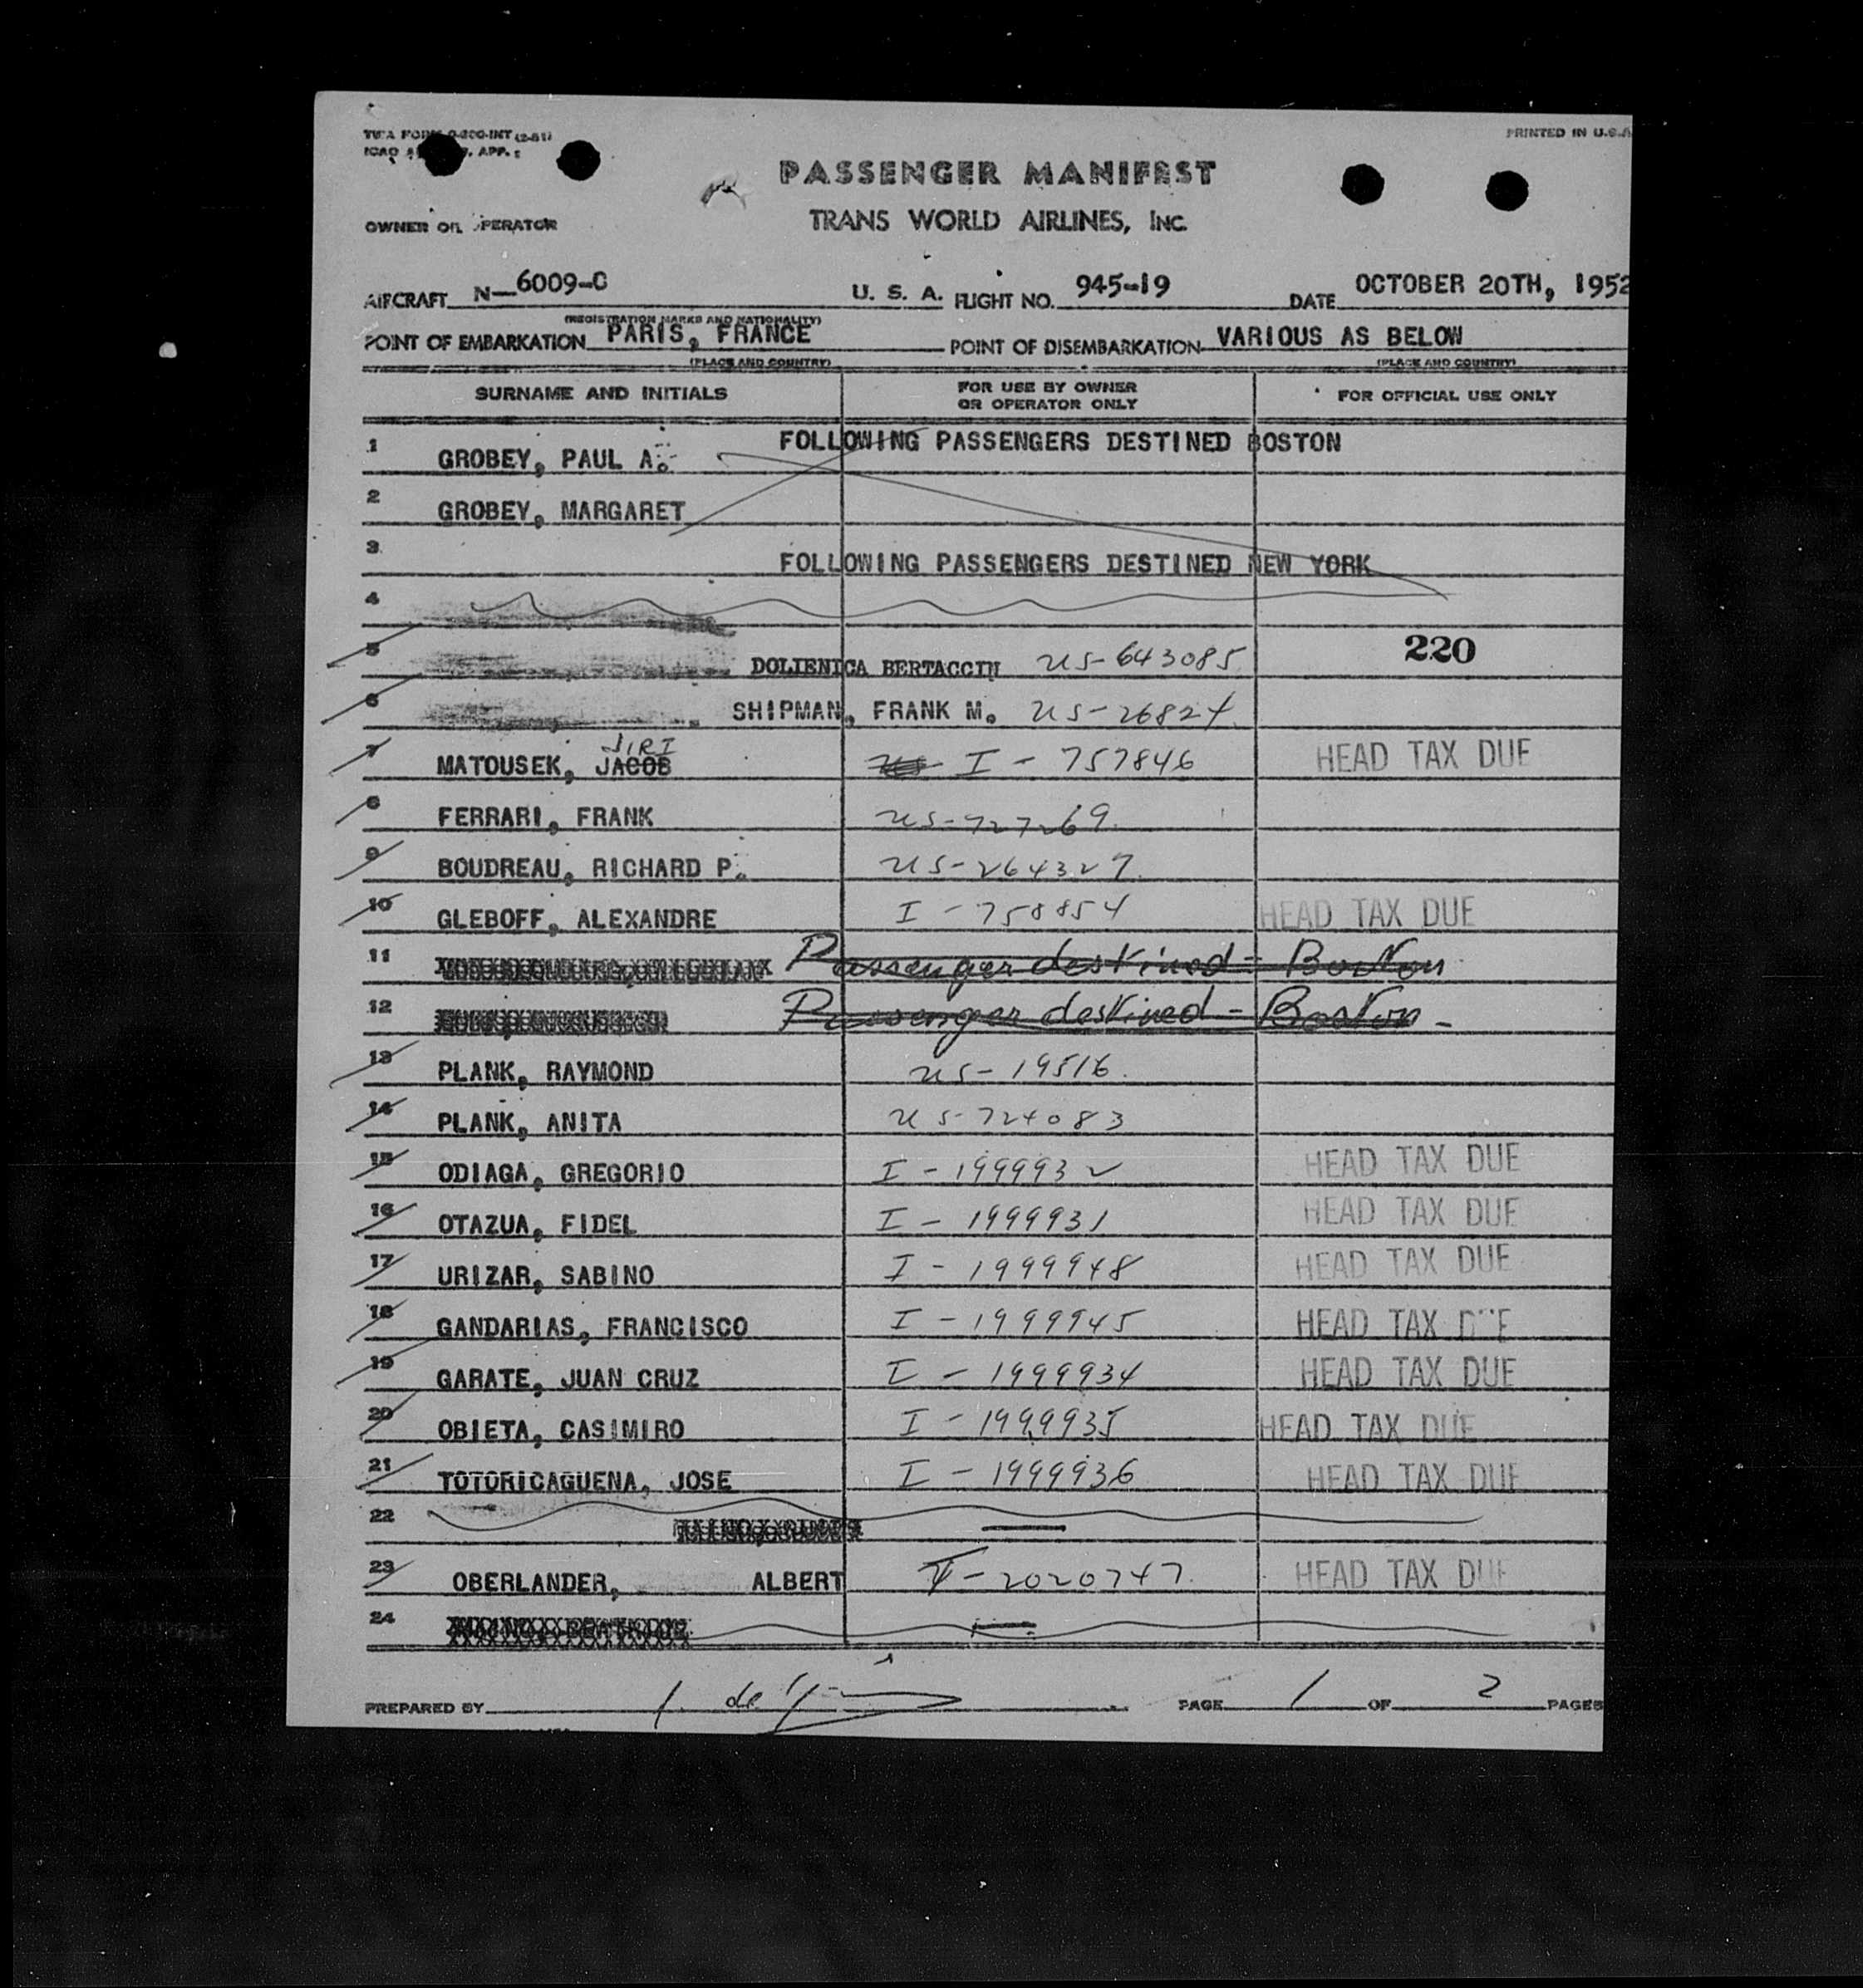 PRINTED IN U.S.A
PASSENGER MANIFEST
TRANS WORLD AIRLINES, INC.
OWNER OR OPERATOR
AIRCRAFT N-6009-C U. S. A. FLIGHT NO. 945-19 DATE OCTOBER 20TH, 1952
(REGISTRATION MARKS AND NATIONALITY)
POINT OF EMBARKATION PARIS, FRANCE POINT OF DISEMBARKATION VARIOUS AS BELOW
(PLACE AND COUNTRY) (PLACE AND COUNTRY)
SURNAME AND INITIALS FOR USE BY OWNER OR OPERATOR ONLY FOR OFFICIAL USE ONLY
FOLLOWING PASSENGERS DESTINED BOSTON
1 GROBEY, PAUL A.
2 GROBEY, MARGARET
3 FOLLOWING PASSENGERS DESTINED NEW YORK
4
5 DOLIENICA BERTACCIN US-643085 220
6 SHIPMAN, FRANK M. US-26824
7 MATOUSEK, JACOB JIRI I-757846 HEAD TAX DUE
8 FERRARI, FRANK US-727269
9 BOUDREAU, RICHARD P. US-264327
10 GLEBOFF, ALEXANDRE I-758854 HEAD TAX DUE
11 Passenger destined - Boston
12 Passenger destined - Boston -
13 PLANK, RAYMOND US-19516
14 PLANK, ANITA US-724083
15 ODIAGA, GREGORIO I-1999932 HEAD TAX DUE
16 OTAZUA, FIDEL I-1999931 HEAD TAX DUE
17 URIZAR, SABINO I-1999948 HEAD TAX DUE
18 GANDARIAS, FRANCISCO I-1999945 HEAD TAX DUE
19 GARATE, JUAN CRUZ I-1999934 HEAD TAX DUE
20 OBIETA, CASIMIRO I-1999935 HEAD TAX DUE
21 TOTORICAGUENA, JOSE I-1999936 HEAD TAX DUE
22
23 OBERLANDER, ALBERT I-2020747 HEAD TAX DUE
24
PREPARED BY PAGE 1 OF 2 PAGES